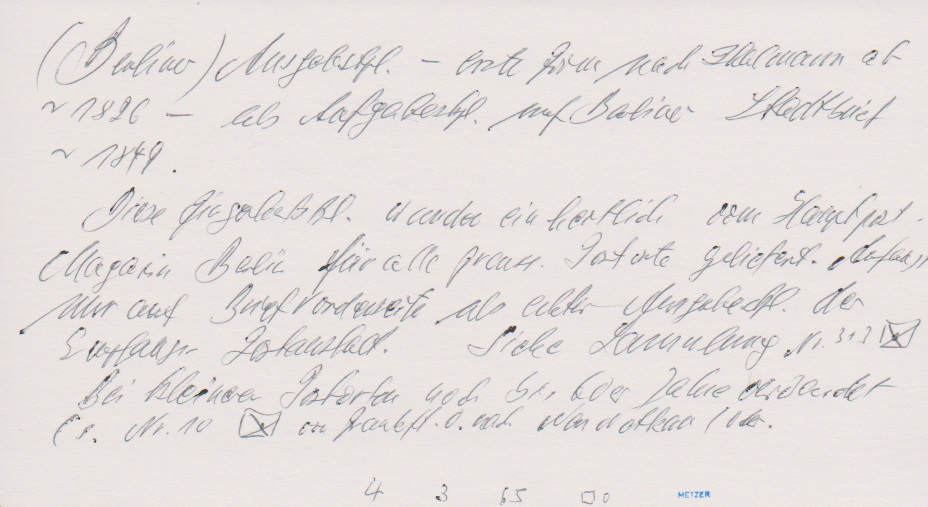 (Berliner) Ausgabestpl. – erste Form nach ab
~ 1826 – als Aufgabestpl. auf Berliner Stadtbrief
~ 1849.
Diese wurden einheitlich vom Hauptpost-
Magazin Berlin für alle preuss. Postorte geliefert. Anfangs
nur auf Briefvorderseite als echter Ausgabestpl. der
Empfangs- Postanstalt. Siehe Sammlung Nr. 313
Bei kleineren Postorten noch bis 60er Jahre verwendet
(s. Nr. 10 von Frankf. O. nach
4 3 65 METZER